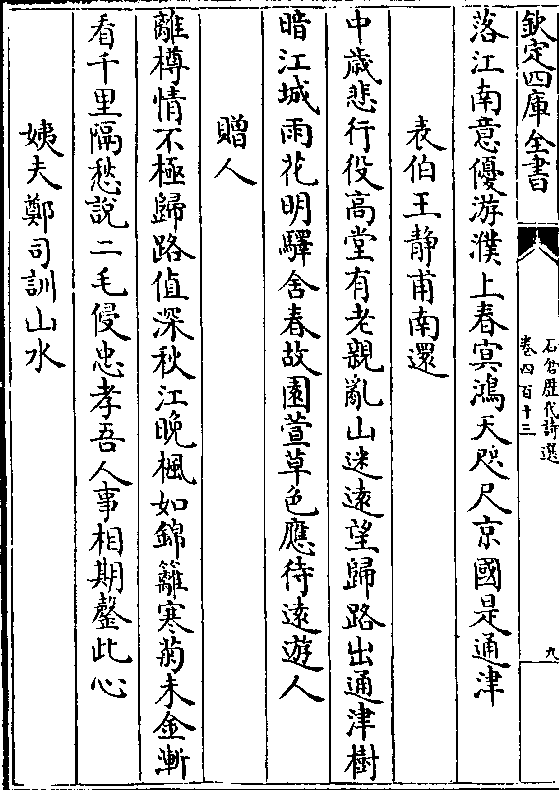 欽定四庫全書
石倉歷代詩選
卷四百十三
九
落江南意優游濮上春㝠鴻天咫尺京國是通津
表伯王靜甫南還
中歲悲行役高堂有老親亂山迷遠望歸路出通津樹
暗江城雨花明驛舍春故園萱草色應待遠遊人
贈人
離樽情不極歸路值深秋江晚楓如錦籬寒菊未金漸
看千里隔愁說二毛侵忠孝吾人事相期罄此心
姨夫鄭司訓山水